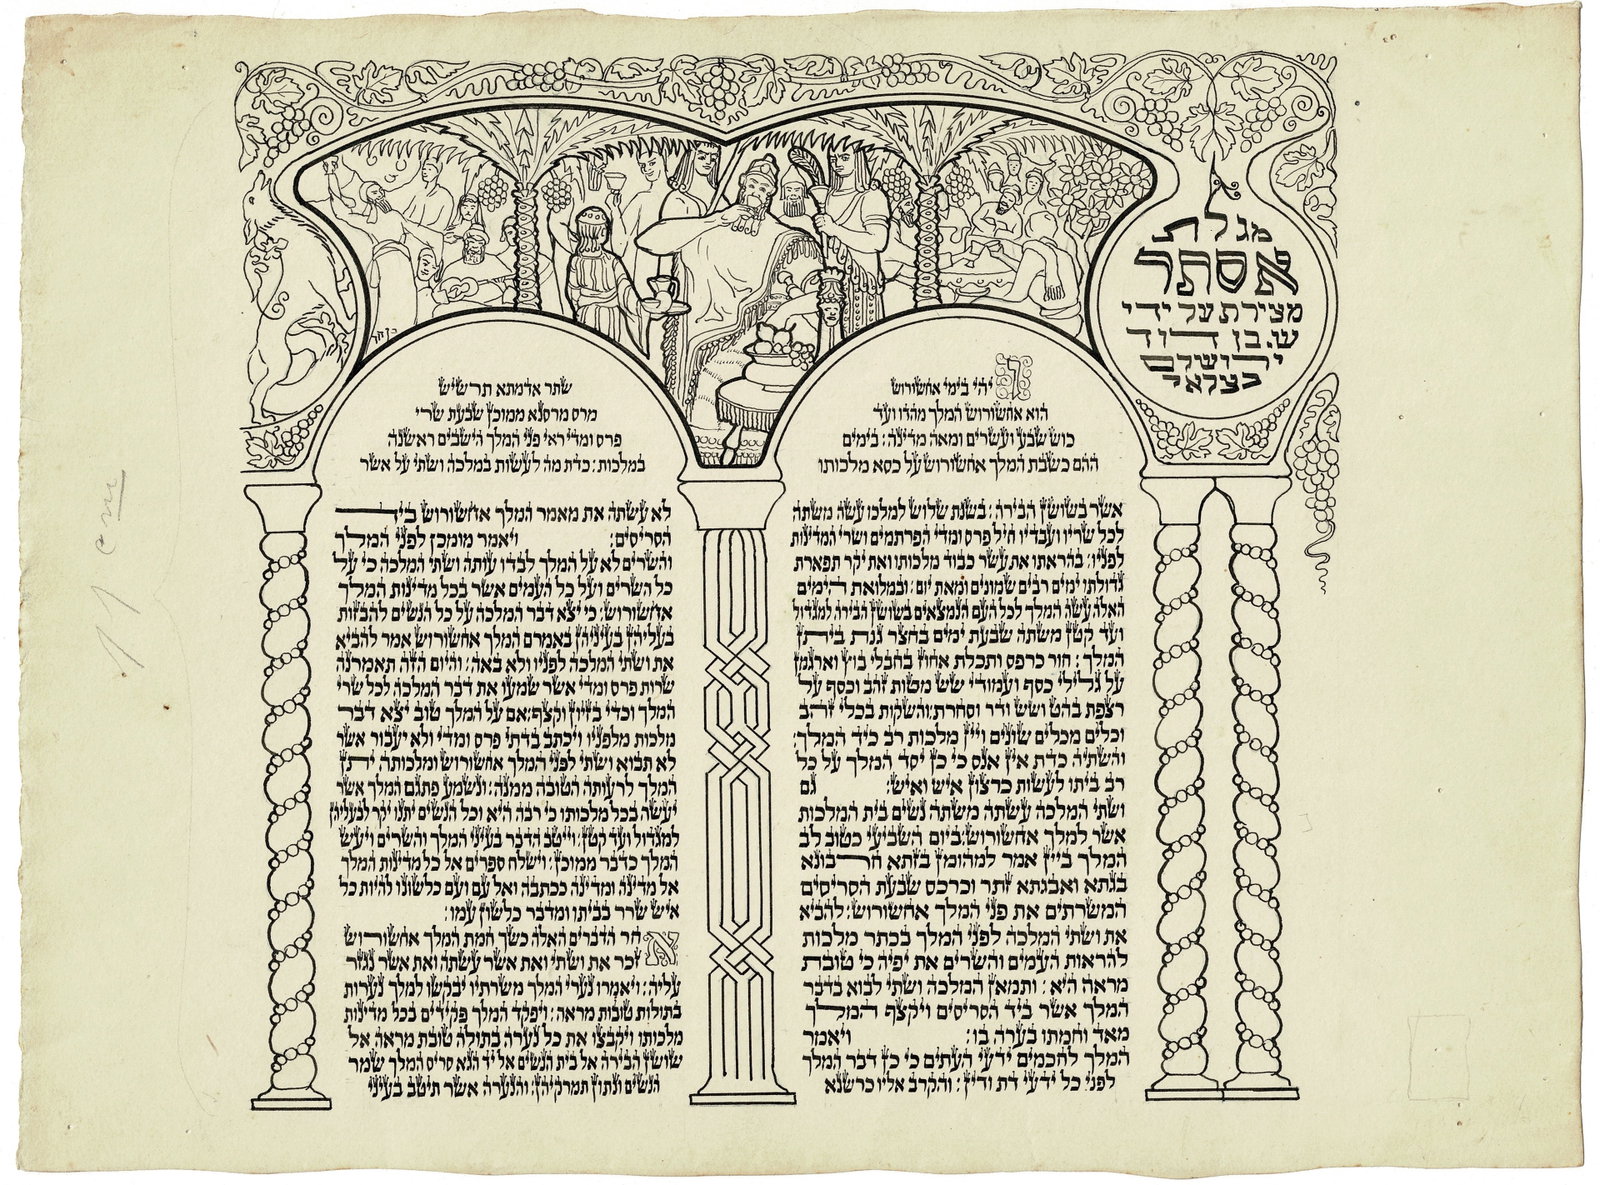 מגלת
אסתר
מצוירת על ידי
ש. בן דוד
ירושלם
בצלאל
ויהי בימי אחשורוש
הוא אחשורוש המלך מהדו ועד
כוש שבע ועשרים ומאה מדינה: בימים
ההם כשבת המלך אחשורוש על כסא מלכותו
אשר בשושן הבירה: בשנת שלוש למלכו עשה משתה
לכל שריו ועבדיו חיל פרס ומדי הפרתמים ושרי המדינות
לפניו: בהראתו את עשר כבוד מלכותו ואת יקר תפארת
גדולתו ימים רבים שמונים ומאת יום: ובמלואת הימים
האלה עשה המלך לכל העם הנמצאים בשושן הבירה למגדול
ועד קטן משתה שבעת ימים בחצר גנת ביתן
המלך: חור כרפס ותכלת אחוז בחבלי בוץ וארגמן
על גלילי כסף ועמודי שש מטות זהב וכסף על
רצפת בהט ושש ודר וסחרת: והשקות בכלי זהב
וכלים מכלים שונים ויין מלכות רב כיד המלך:
והשתיה כדת אין אנס כי כן יסד המלך על כל
רב ביתו לעשות כרצון איש ואיש: גם
ושתי המלכה עשתה משתה נשים בית המלכות
אשר למלך אחשורוש: ביום השביעי כטוב לב
המלך ביין אמר למהומן בזתא חרבונא
בגתא ואבגתא זתר וכרכס שבעת הסריסים
המשרתים את פני המלך אחשורוש: להביא
את ושתי המלכה לפני המלך בכתר מלכות
להראות העמים והשרים את יפיה כי טובת
מראה היא: ותמאן המלכה ושתי לבוא בדבר
המלך אשר ביד הסריסים ויקצף המלך
מאד וחמתו בערה בו: ויאמר
המלך לחכמים ידעי העתים כי כן דבר המלך
לפני כל ידעי דת ודין: והקרב אליו כרשנא
שתר אדמתא תרשיש
מרס מרסנא ממוכן שבעת שרי
פרס ומדי ראי פני המלך הישבים ראשנה
במלכות: כדת מה לעשות במלכה ושתי על אשר
לא עשתה את מאמר המלך אחשורוש ביד
הסריסים: ויאמר מומכן לפני המלך
והשרים לא על המלך לבדו עותה ושתי המלכה כי על
כל השרים ועל כל העמים אשר בכל מדינות המלך
אחשורוש: כי יצא דבר המלכה על כל הנשים להבזות
בעליהן בעיניהן באמרם המלך אחשורוש אמר להביא
את ושתי המלכה לפניו ולא באה: והיום הזה תאמרנה
שרות פרס ומדי אשר שמעו את דבר המלכה לכל שרי
המלך וכדי בזיון וקצף: אם על המלך טוב יצא דבר
מלכות מלפניו ויכתב בדתי פרס ומדי ולא יעבור אשר
לא תבוא ושתי לפני המלך אחשורוש ומלכותה יתן
המלך לרעותה הטובה ממנה: ונשמע פתגם המלך אשר
יעשה בכל מלכותו כי רבה היא וכל הנשים יתנו יקר לבעליהן
למגדול ועד קטן: וייטב הדבר בעיני המלך והשרים ויעש
המלך כדבר ממוכן: וישלח ספרים אל כל מדינות המלך
אל מדינה ומדינה ככתבה ואל עם ועם כלשונו להיות כל
איש שרר בביתו ומדבר כלשון עמו:
אחר הדברים האלה כשך חמת המלך אחשורוש
זכר את ושתי ואת אשר עשתה ואת אשר נגזר
עליה: ויאמרו נערי המלך משרתיו יבקשו למלך נערות
בתולות טובות מראה: ויפקד המלך פקידים בכל מדינות
מלכותו ויקבצו את כל נערה בתולה טובת מראה אל
שושן הבירה אל בית הנשים אל יד הגא סריס המלך שמר
הנשים ונתון תמרקיהן: והנערה אשר תיטב בעיני